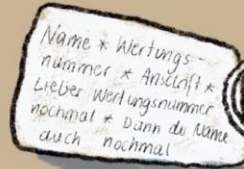 Name * Wertungs-
nummer * Anschrift *
Lieber Wertungsnummer
nochmal * Dann du Name
auch nochmal